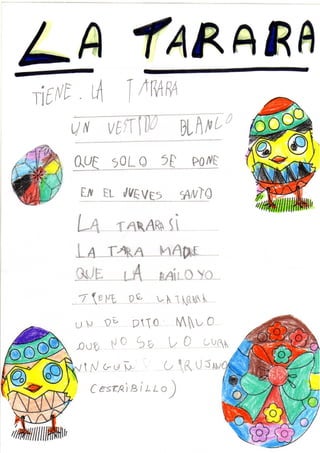 LA TARARA
TIENE. LA TARARA
UN VESTIDO BLANCO
QUE SOLO SE PONE
EN EL JUEVES SANTO
LA TARARA SI
LA TARA MADRE
QUE LA BAILO YO
TIENE DE LA TARARA
UN DE DITO MALO
QUE NO SE LO CURA
NINGUN CIRUJANO
(ESTRIBILLO)